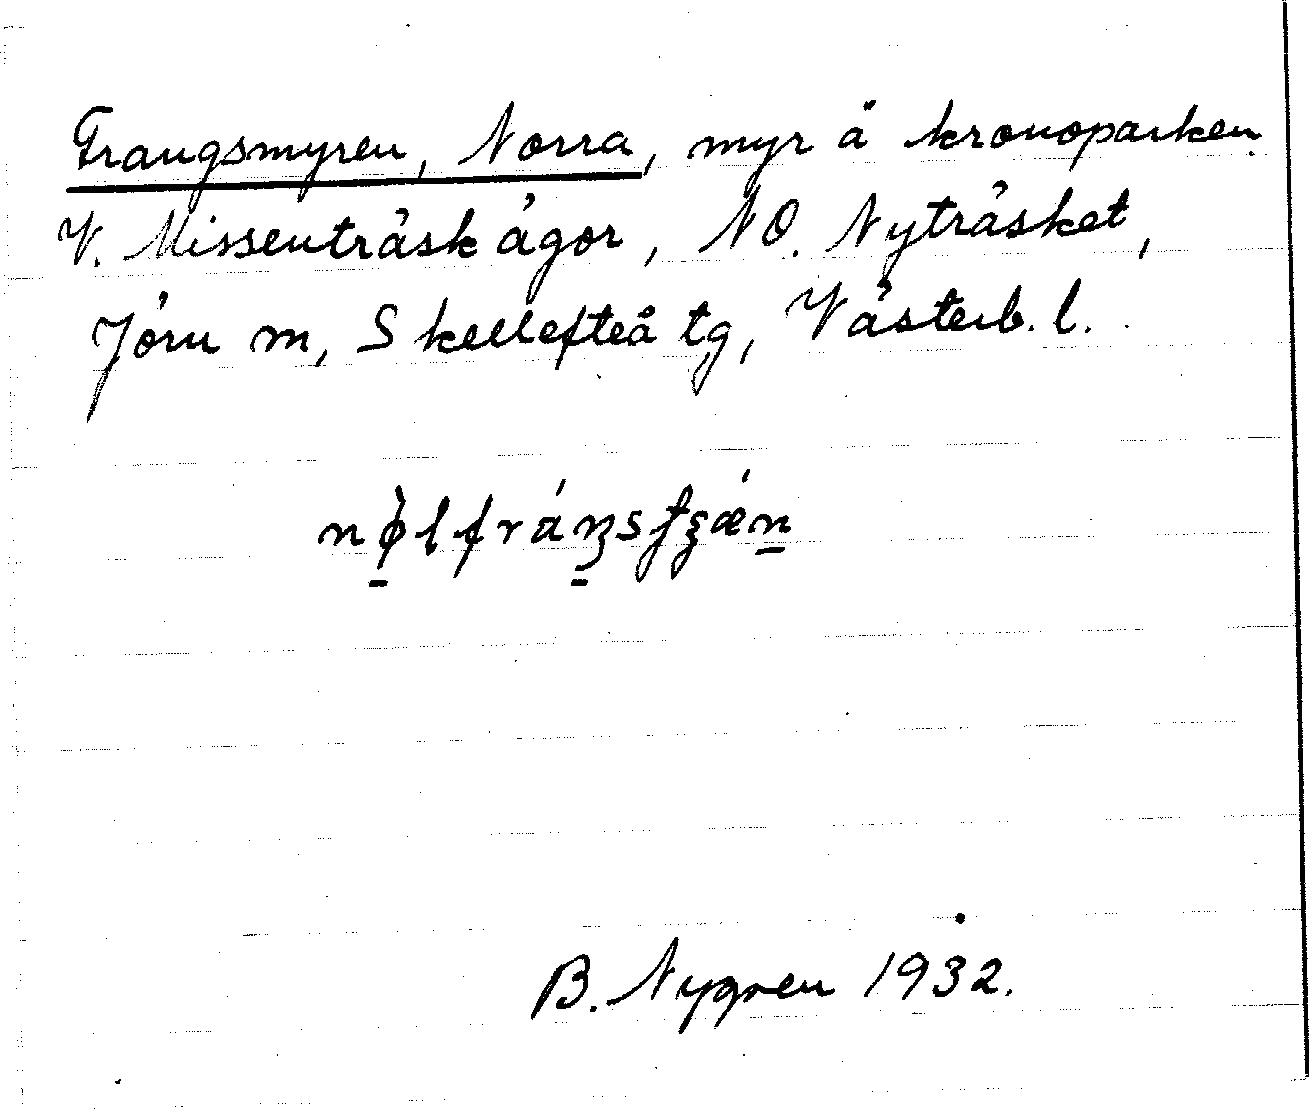 Frangsmyren, Norra, myr å kronoparken
V. Missenträsk ägor, NO. Nyträsket,
Jörn m, Skellefteå tg, Västerb. l.
B. Nygren 1932.